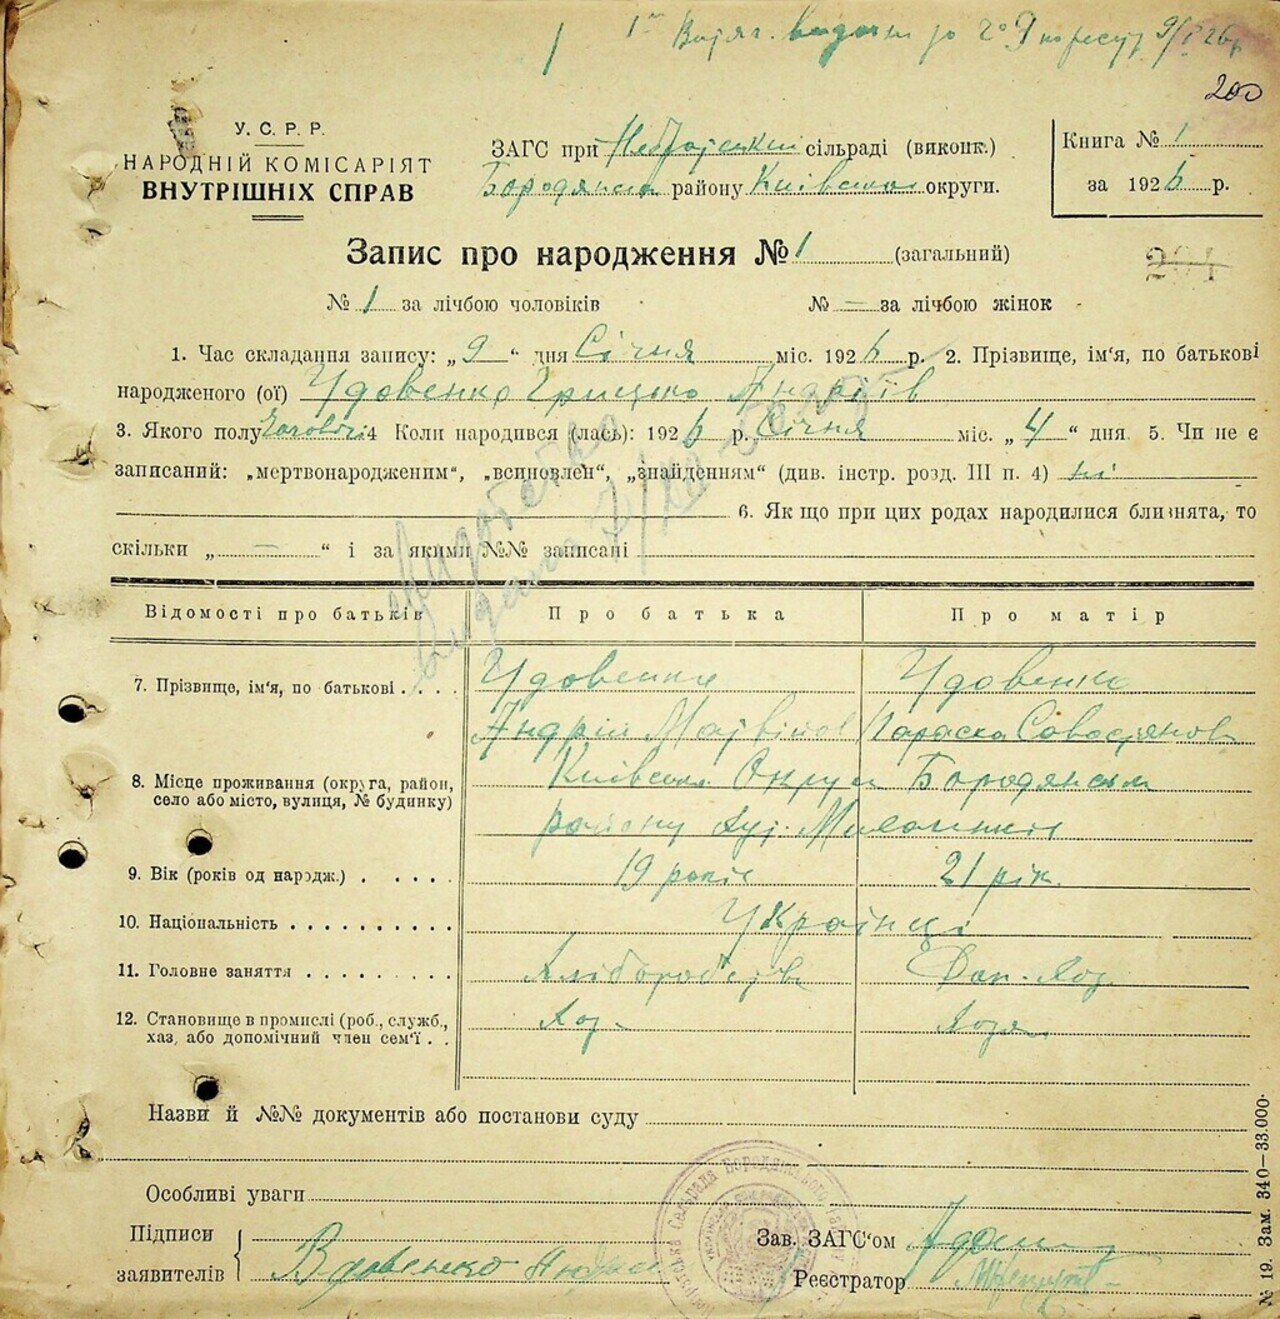 1 Витяг. видали до 9/I 26 р
200
У. С. Р. Р.
НАРОДНІЙ КОМІСАРІЯТ
ВНУТРІШНІХ СПРАВ
ЗАГС при сільраді (виконк.)
Бородянськ району Київської округи.
Книга № 1
за 1926 р.
Запис про народження № 1 (загальний)
204
№ 1 за лічбою чоловіків № — за лічбою жінок
1. Час складання запису: „ 9 “ дня Січня міс. 1926 р. 2. Прізвище, ім'я, по батькові
народженого (ої) Удовенко Грицько Андріїв
3. Якого полу 4 Коли народився (лась): 1926 р. Січня міс. „ 4 “ дня. 5. Чи не є
записаний: „мертвонародженим“, „всиновлен“, „знайденням“ (див. інстр. розд. III п. 4) ні
6. Як що при цих родах народилися близнята, то
скільки „ — “ і за якими №№ записані
Відомості про батьків Про батька Про матір
7. Прізвище, ім'я, по батькові . . . . Удовенко Удовенко
Андрій Матвіїов Параска Совостянов
8. Місце проживання (округа, район, Київська Округа Бородянськ
село або місто, вулиця, № будинку) району хут. Миланки
9. Вік (років од народж.) . . . . . 19 років 21 рік.
10. Національність . . . . . . . . . . Українці
11. Головне заняття . . . . . . . . . Хліборобств Дом. Хоз.
12. Становище в промислі (роб., служб., Хоз. Хозя
хаз, або допомічний член сем'ї . .
Назви й №№ документів або постанови суду
Особливі уваги
Підписи
заявителів Вдовенко Андр
Зав. ЗАГС'ом
Реєстратор
№ 19. Зам. 340—33.000.